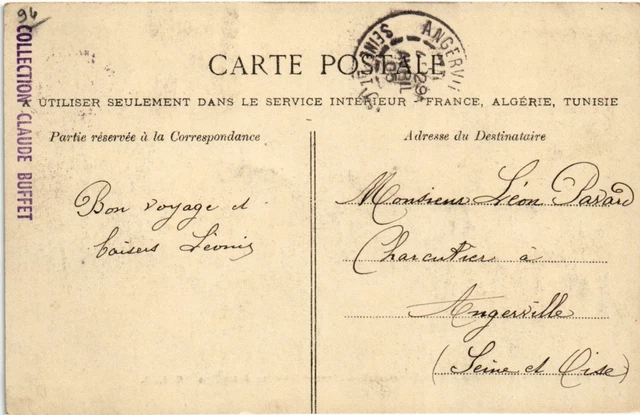 94
COLLECTION CLAUDE BUFFET
ANGERVI
SEINE-ET-
CARTE POSTALE
A UTILISER SEULEMENT DANS LE SERVICE INTÉRIEUR (FRANCE, ALGÉRIE, TUNISIE
Partie réservée à la Correspondance
Adresse du Destinataire
Bon voyage et
baisers Léonis
Monsieur Léon Pavard
Charcutier à
Angerville
(Seine et Oise)